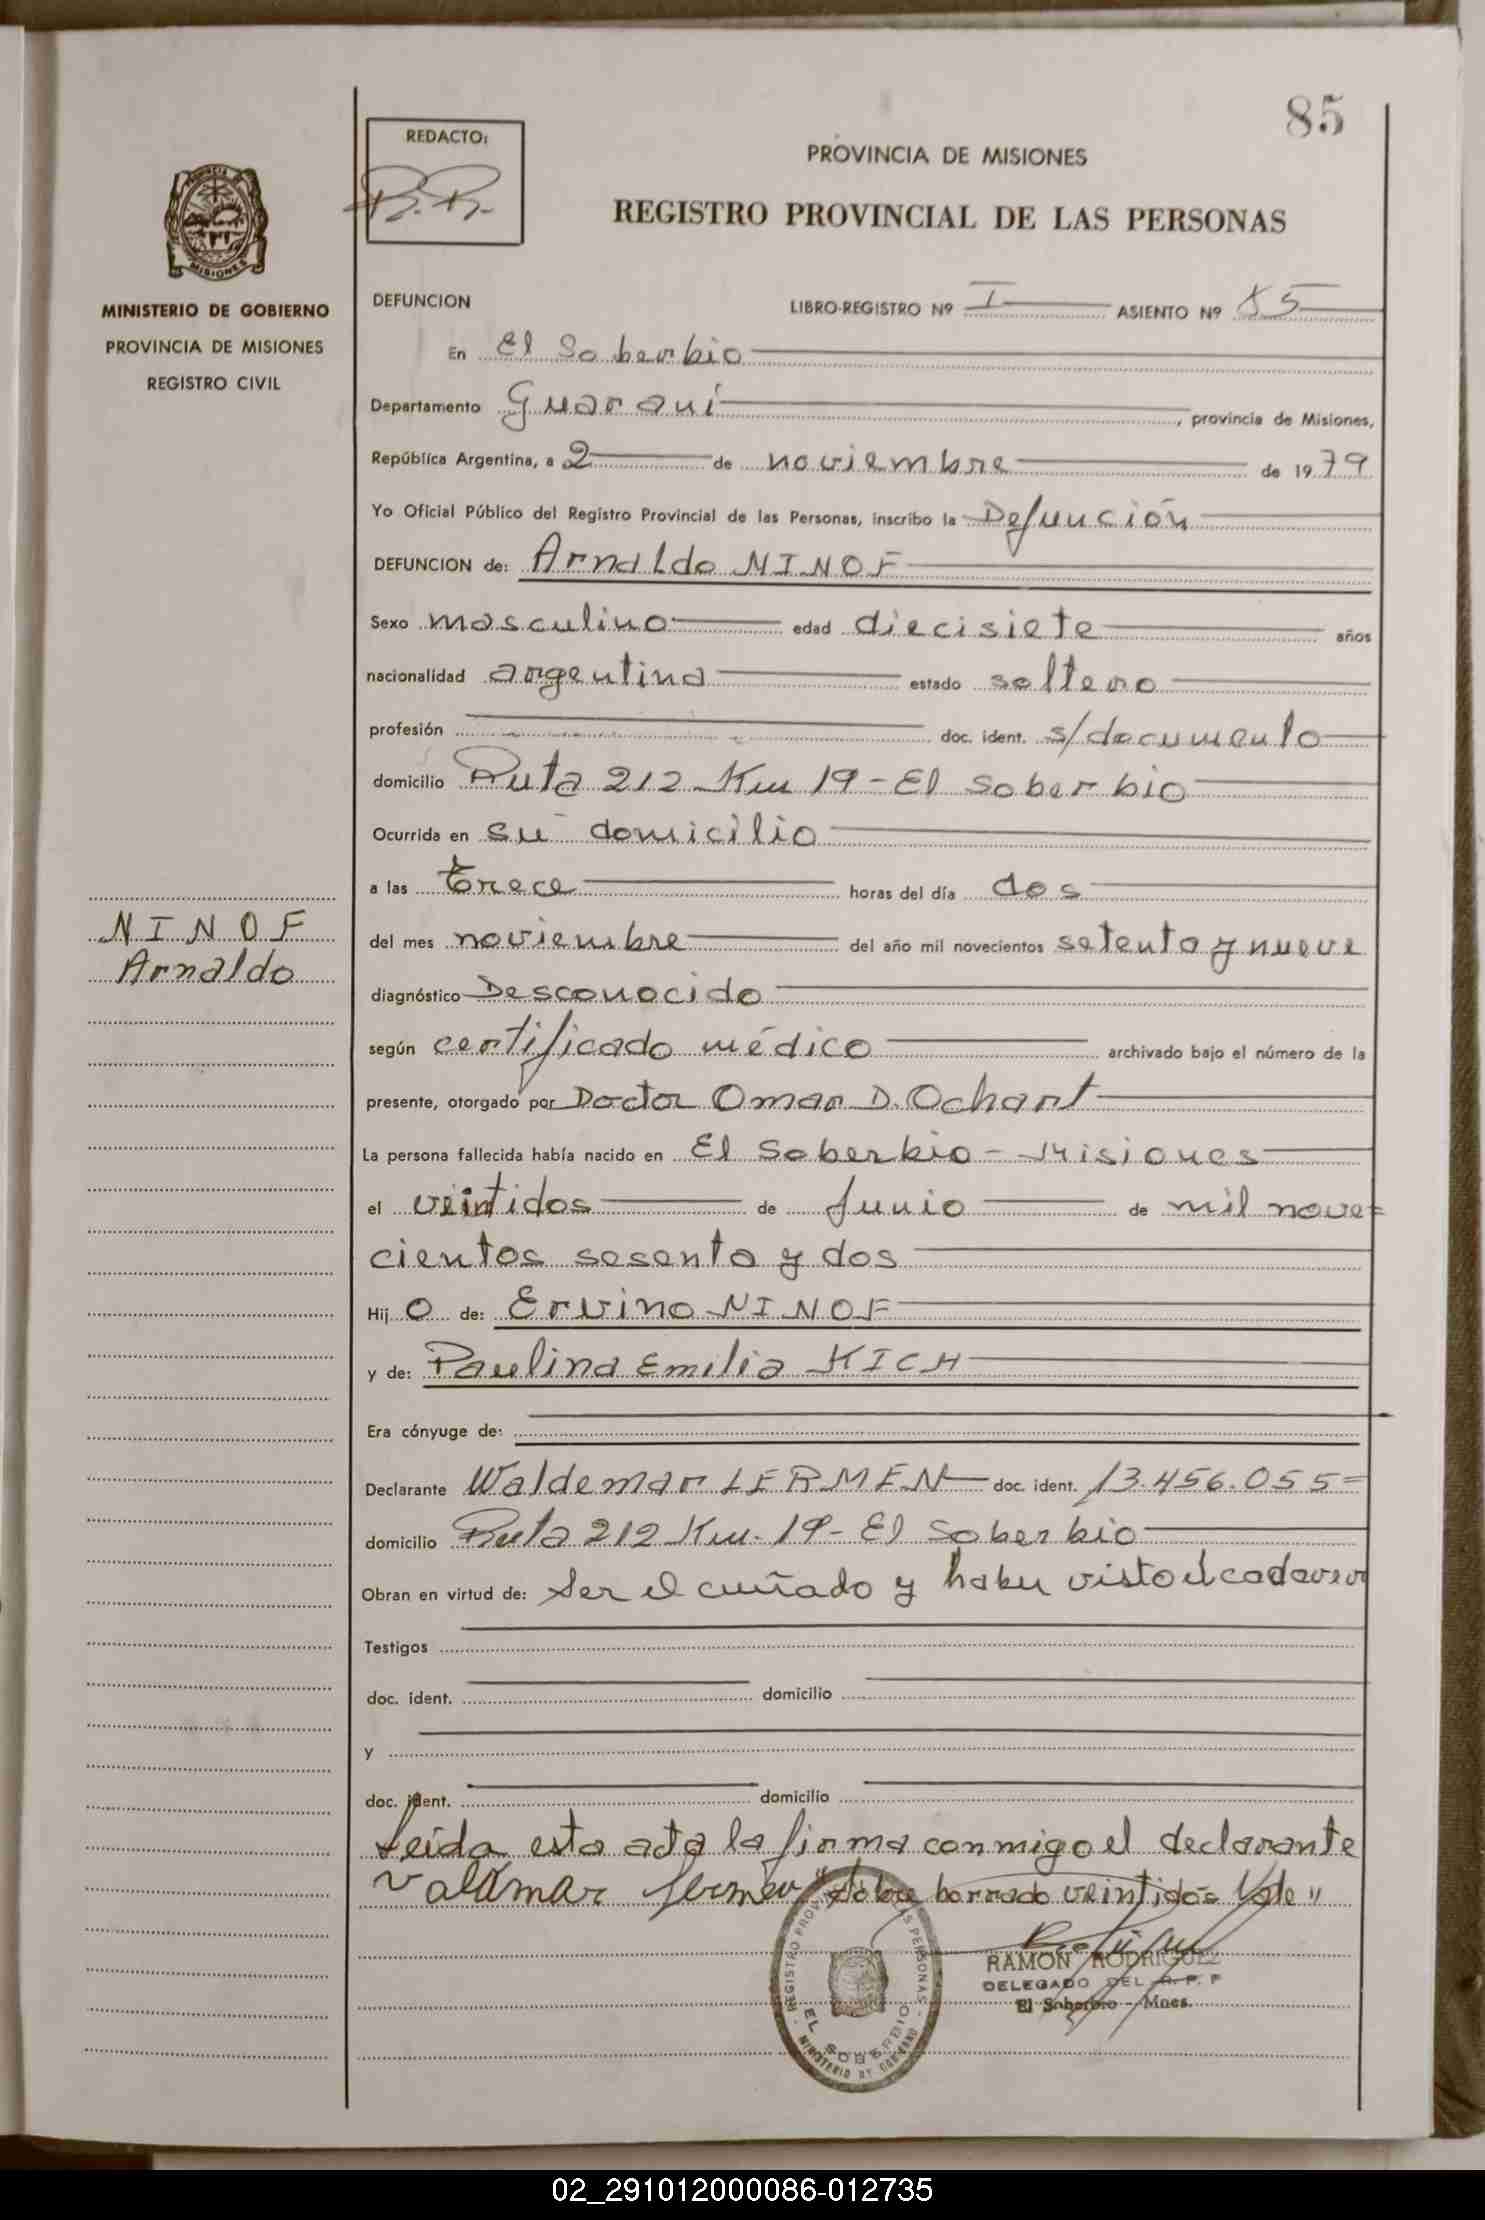 85
REDACTO:
B.R.
PROVINCIA DE MISIONES
REGISTRO PROVINCIAL DE LAS PERSONAS
MISIONES
MINISTERIO DE GOBIERNO
PROVINCIA DE MISIONES
REGISTRO CIVIL
DEFUNCION LIBRO-REGISTRO Nº I ASIENTO Nº 85
En El Soberbio
Departamento Guaraní, provincia de Misiones,
República Argentina, a 2 de noviembre de 1979
Yo Oficial Público del Registro Provincial de las Personas, inscribo la Defunción
DEFUNCION de: Arnaldo NINOF
Sexo masculino edad diecisiete años
nacionalidad argentina estado soltero
profesión doc. ident. s/documento
domicilio Ruta 212 Km 19 - El Soberbio
Ocurrida en su domicilio
a las trece horas del día dos
NINOF
Arnaldo
del mes noviembre del año mil novecientos setenta y nueve
diagnóstico Desconocido
según certificado médico archivado bajo el número de la
presente, otorgado por Doctor Omar D. Ochart
La persona fallecida había nacido en El Soberbio - Misiones
el veintidos de Junio de mil nove=
cientos sesenta y dos
Hij o de: Ervino NINOF
y de: Paulina Emilia KICH
Era cónyuge de:
Declarante Waldemar LERMEN doc. ident. 13.456.055=
domicilio Ruta 212 Km. 19 - El Soberbio
Obran en virtud de: Ser el cuñado y haber visto el cadaver
Testigos
doc. ident. domicilio
y
doc. ident. domicilio
Leída esta acta la firma conmigo el declarante
Valdmar Lermen "sobre borrado veintidos Vale"
RAMON RODRIGUEZ
DELEGADO DEL R. P. P
El Soberbio - Mnes.
REGISTRO PROV LAS PERSONAS
EL SOBERBIO
MINISTERIO DE GOBIERNO
02_291012000086-012735